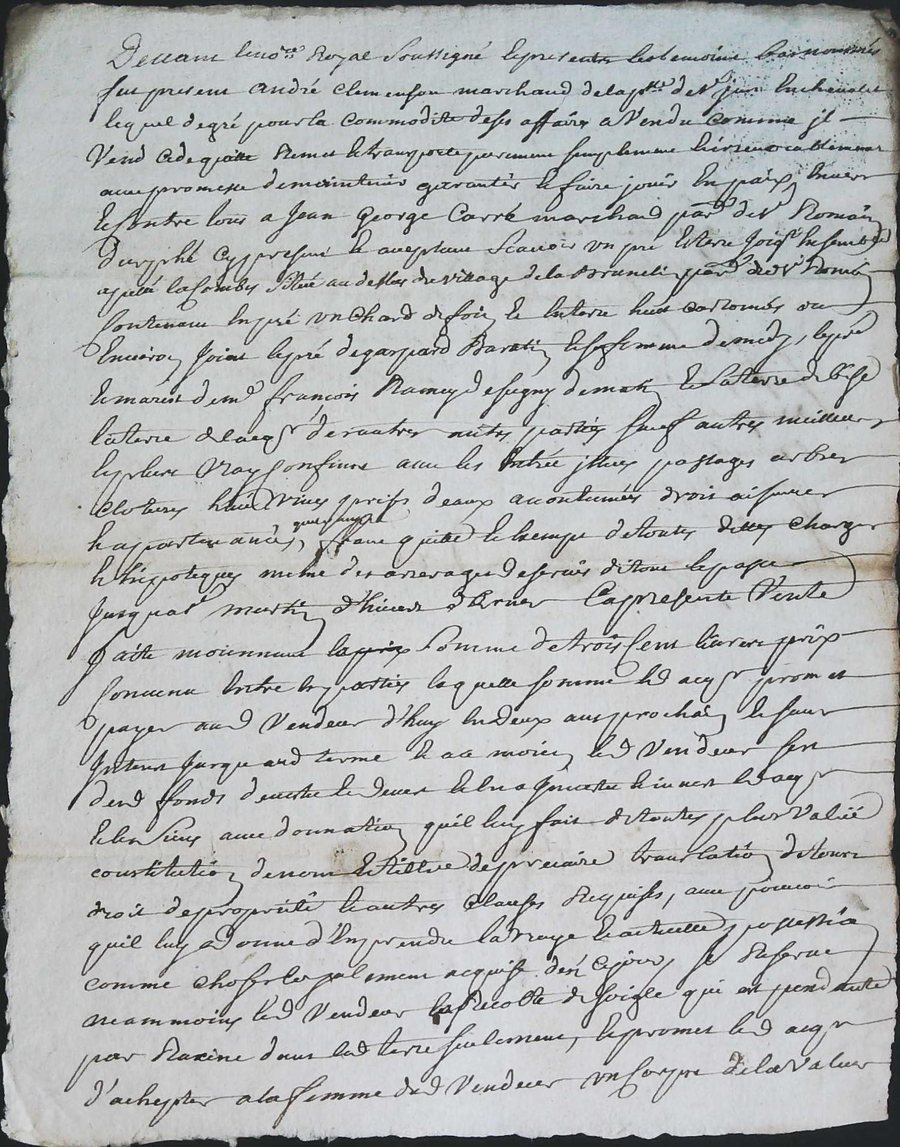 Devant le no.re Royal Soussigné et presents les temoins bas nommés
fut present andré Clemenson marchand de la p.sse de s.t jean
lequel de gré pour la commodité de ses affaires a Vendu comme jl
Vend cede quitte Remet et transporte purement simplement
avec promesse de maintenir garantir et faire jouir En paix Envers
et contre tous a Jean George Carré marchand par.t de s.t Romain
d'urphé cy present et aceptant Scavoir un pré et terre joig.t Ensemble
apellé la Combe Scitué au dessus du village de la par.t de s.t Romain
Contenant En pré un Chard de foin et En terre huit cartonnés ou
Environ Joint le pré de gaspard et sa femme de midy, le pré
de m.r françois Ramey de sugny de matin et la terre de bise
la terre de l'acqr. de autres parties sauf autres meilleurs
et plus Vrays Confins avec les Entrée jssues passages arbres
Clotures prises d'eaux acoutumées droit aisances
et apartenances, franc quitte et Exempt de toutes dettes Charges
et hipoteques meme des arrerages de servis de tout le passé
Jusqu'a s.t martin d'hiver dernier La presente Vente
faite moiennant la somme de trois Cent livres prix
Convenu Entre les parties laquelle somme led acqr promet
payer aud Vendeur d'huy En deux ans prochain et sans
Interest jusqu'aud terme et au moien led Vendeur s'en
dud fonds devestu et demet et En a jnvestu led acqr
et les Siens avec donnation qu'il luy fait de toutes plus Valüe
constitution de nom et tiltre de precaire translation de tout
droit de propriété et autres Clauses Requises, avec pouvoir
qu'il luy a Donné d'En prendre la Vraye et actuelle possession
comme chose loyalement acquise dés ce jour, se Reserve
neammoins led Vendeur la Recolte de soigle qui est pendante
par Racine dans lad terre seulement, et promet led acqr
d'achepter a la femme dud Vendeur un Corps de la Valeur